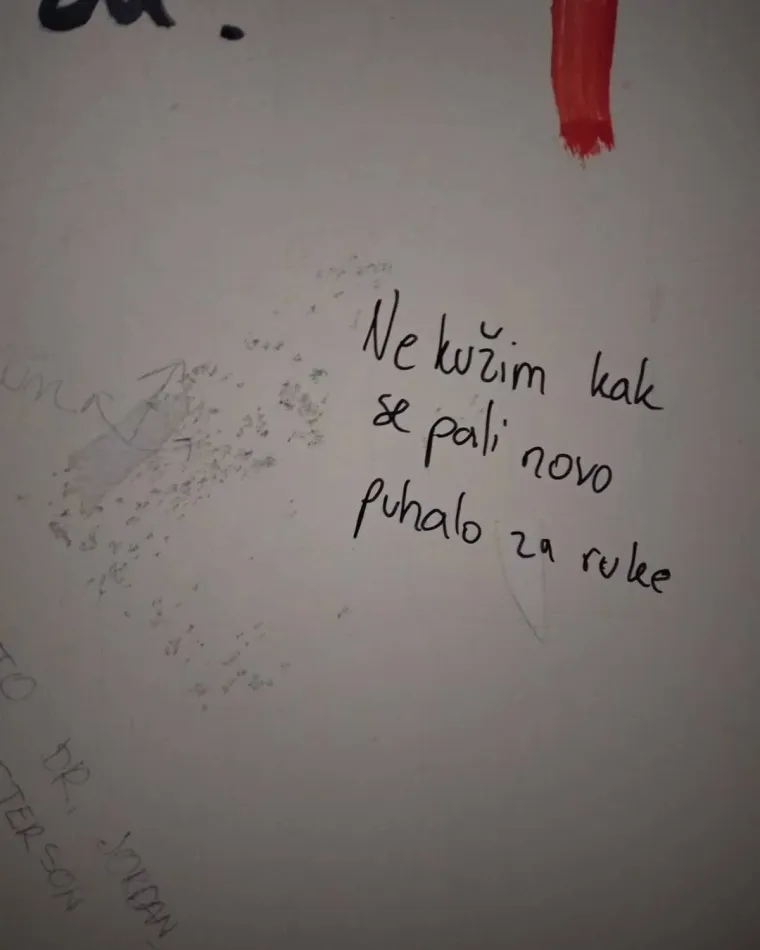 Ne kužim kak
se pali novo
puhalo za ruke
TO DR. JORDAN
TERSON